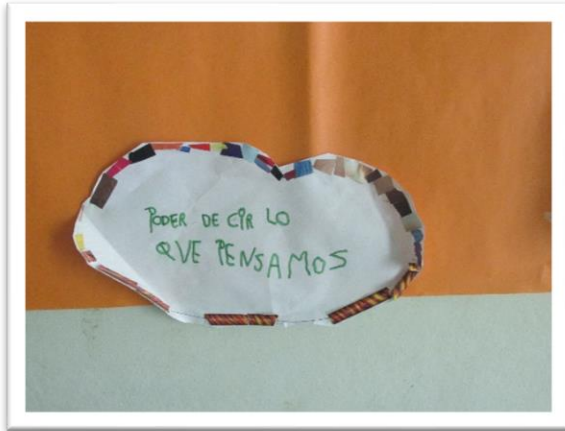 PODER DE CIR LO
QVE PENSAMOS